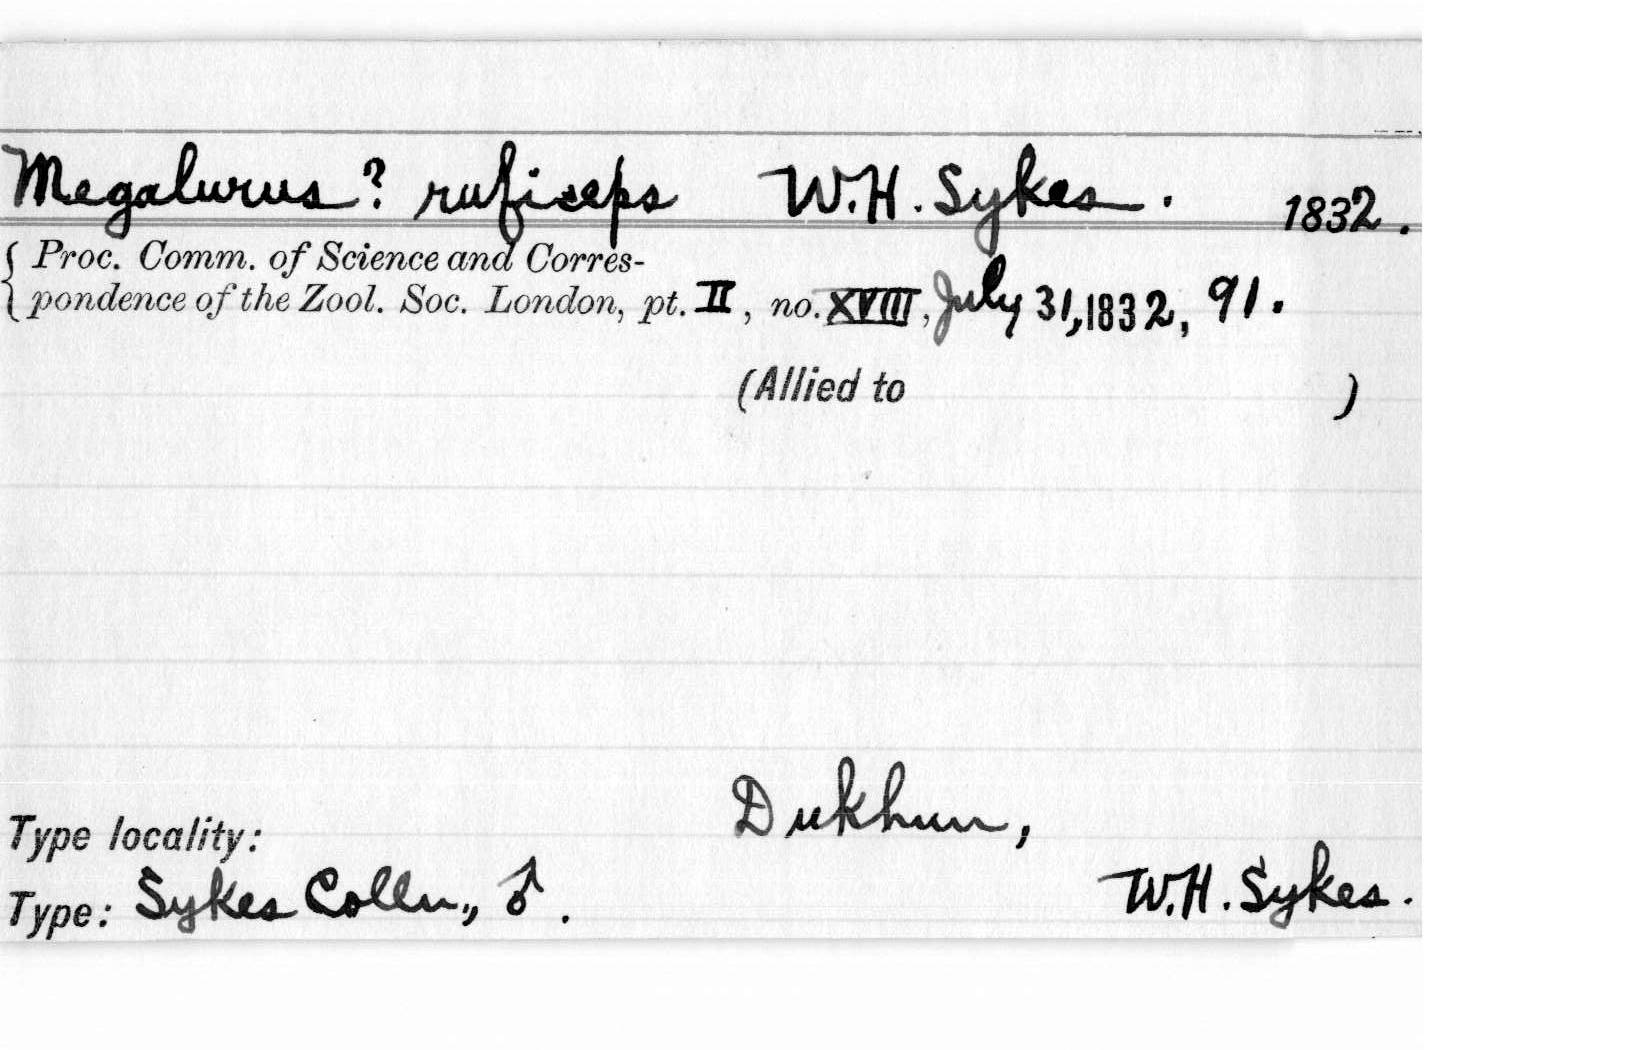 Megalurus? ruficeps W.H. Sykes. 1832.
Proc. Comm. of Science and Corres-
pondence of the Zool. Soc. London, pt. II, no. XVIII, July 31, 1832, 91.
(Allied to )
Type locality: Dukhun,
Type: Sykes Colln., ♂. W.H. Sykes.